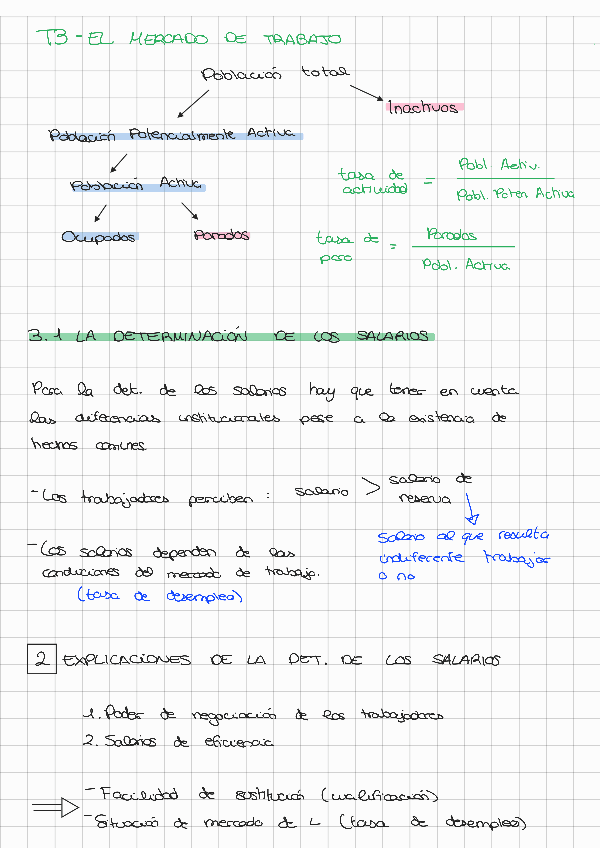 T3 - EL MERCADO DE TRABAJO
Población total
Inactivos
Población Potencialmente Activa
Población Activa
tasa de actividad = Pobl. Activ. / Pobl. Poten. Activa
Ocupados Parados
tasa de paro = Parados / Pobl. Activa
3.1 LA DETERMINACIÓN DE LOS SALARIOS
Para la det. de los salarios hay que tener en cuenta
las diferencias institucionales pese a la existencia de
hechos comunes
- Los trabajadores perciben : salario > salario de
reserva
salario al que resulta
indiferente trabajar
o no
- Los salarios dependen de las
condiciones del mercado de trabajo.
(tasa de desempleo)
2 EXPLICACIONES DE LA DET. DE LOS SALARIOS
1. Poder de negociación de los trabajadores
2. Salarios de eficiencia
- Facilidad de sustitución (cualificación)
- Situación de mercado de L (tasa de desempleo)